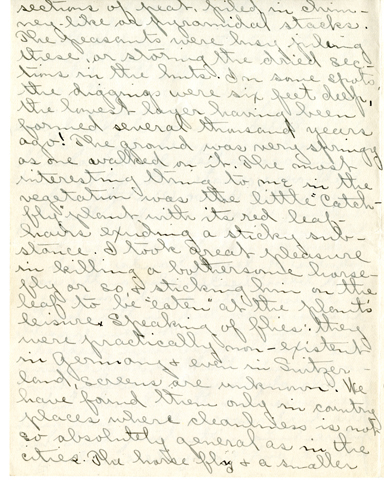 sections of peat, piled in chim-
ney-like or pyramidal stacks.
The peasants were busy piling
these, or storing the dried sec-
tions in the huts. In some spots
the diggings were six feet deep,
the lowest layer having been
formed several thousand years
ago! The ground was very springy
as one walked on it. The most
interesting thing to me in the
vegetation was the little "catch-
fly" plant with its red leaf-
hairs exuding a sticky sub-
stance. I took great pleasure
in killing a bothersome horse-
fly or so, & sticking him on the
leaf to be "eaten" at the plant's
leisure. Speaking of flies: they
were practically non-existent
in Germany & even in Switzer-
land, screens are unknown. We
have found them only in country
places where cleanliness is not
so absolutely general as in the
cities. The horse fly & a smaller